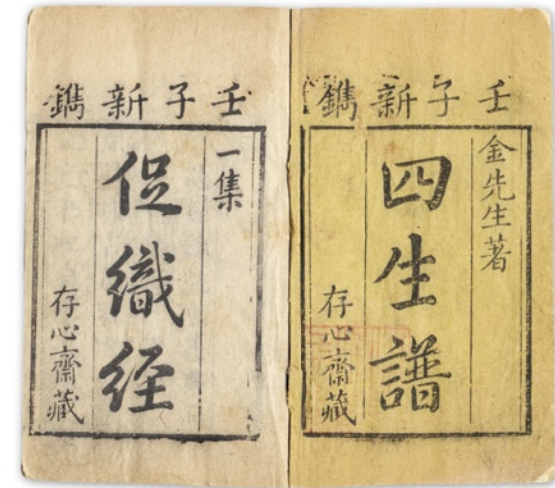 壬子新鐫
金先生著
四生譜
存心齋藏
壬子新鐫
一集
促織経
存心齋藏